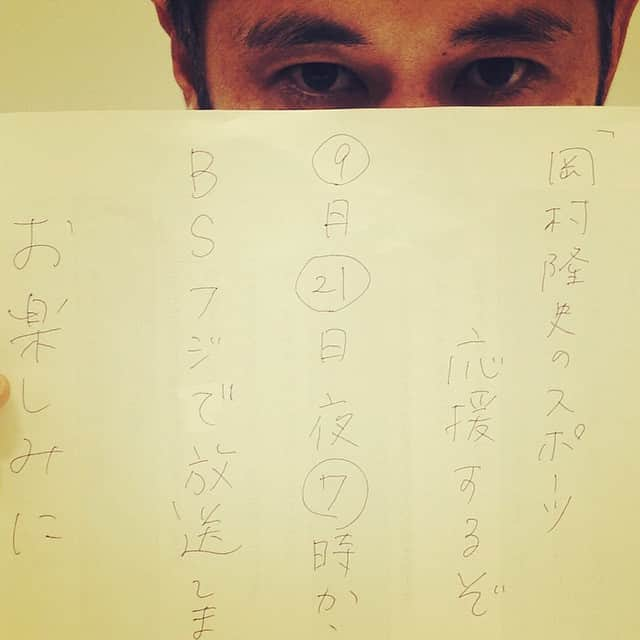 「岡村隆史のスポーツ
応援するぞ
9月21日夜7時か
BSフジで放送しま
お楽しみに